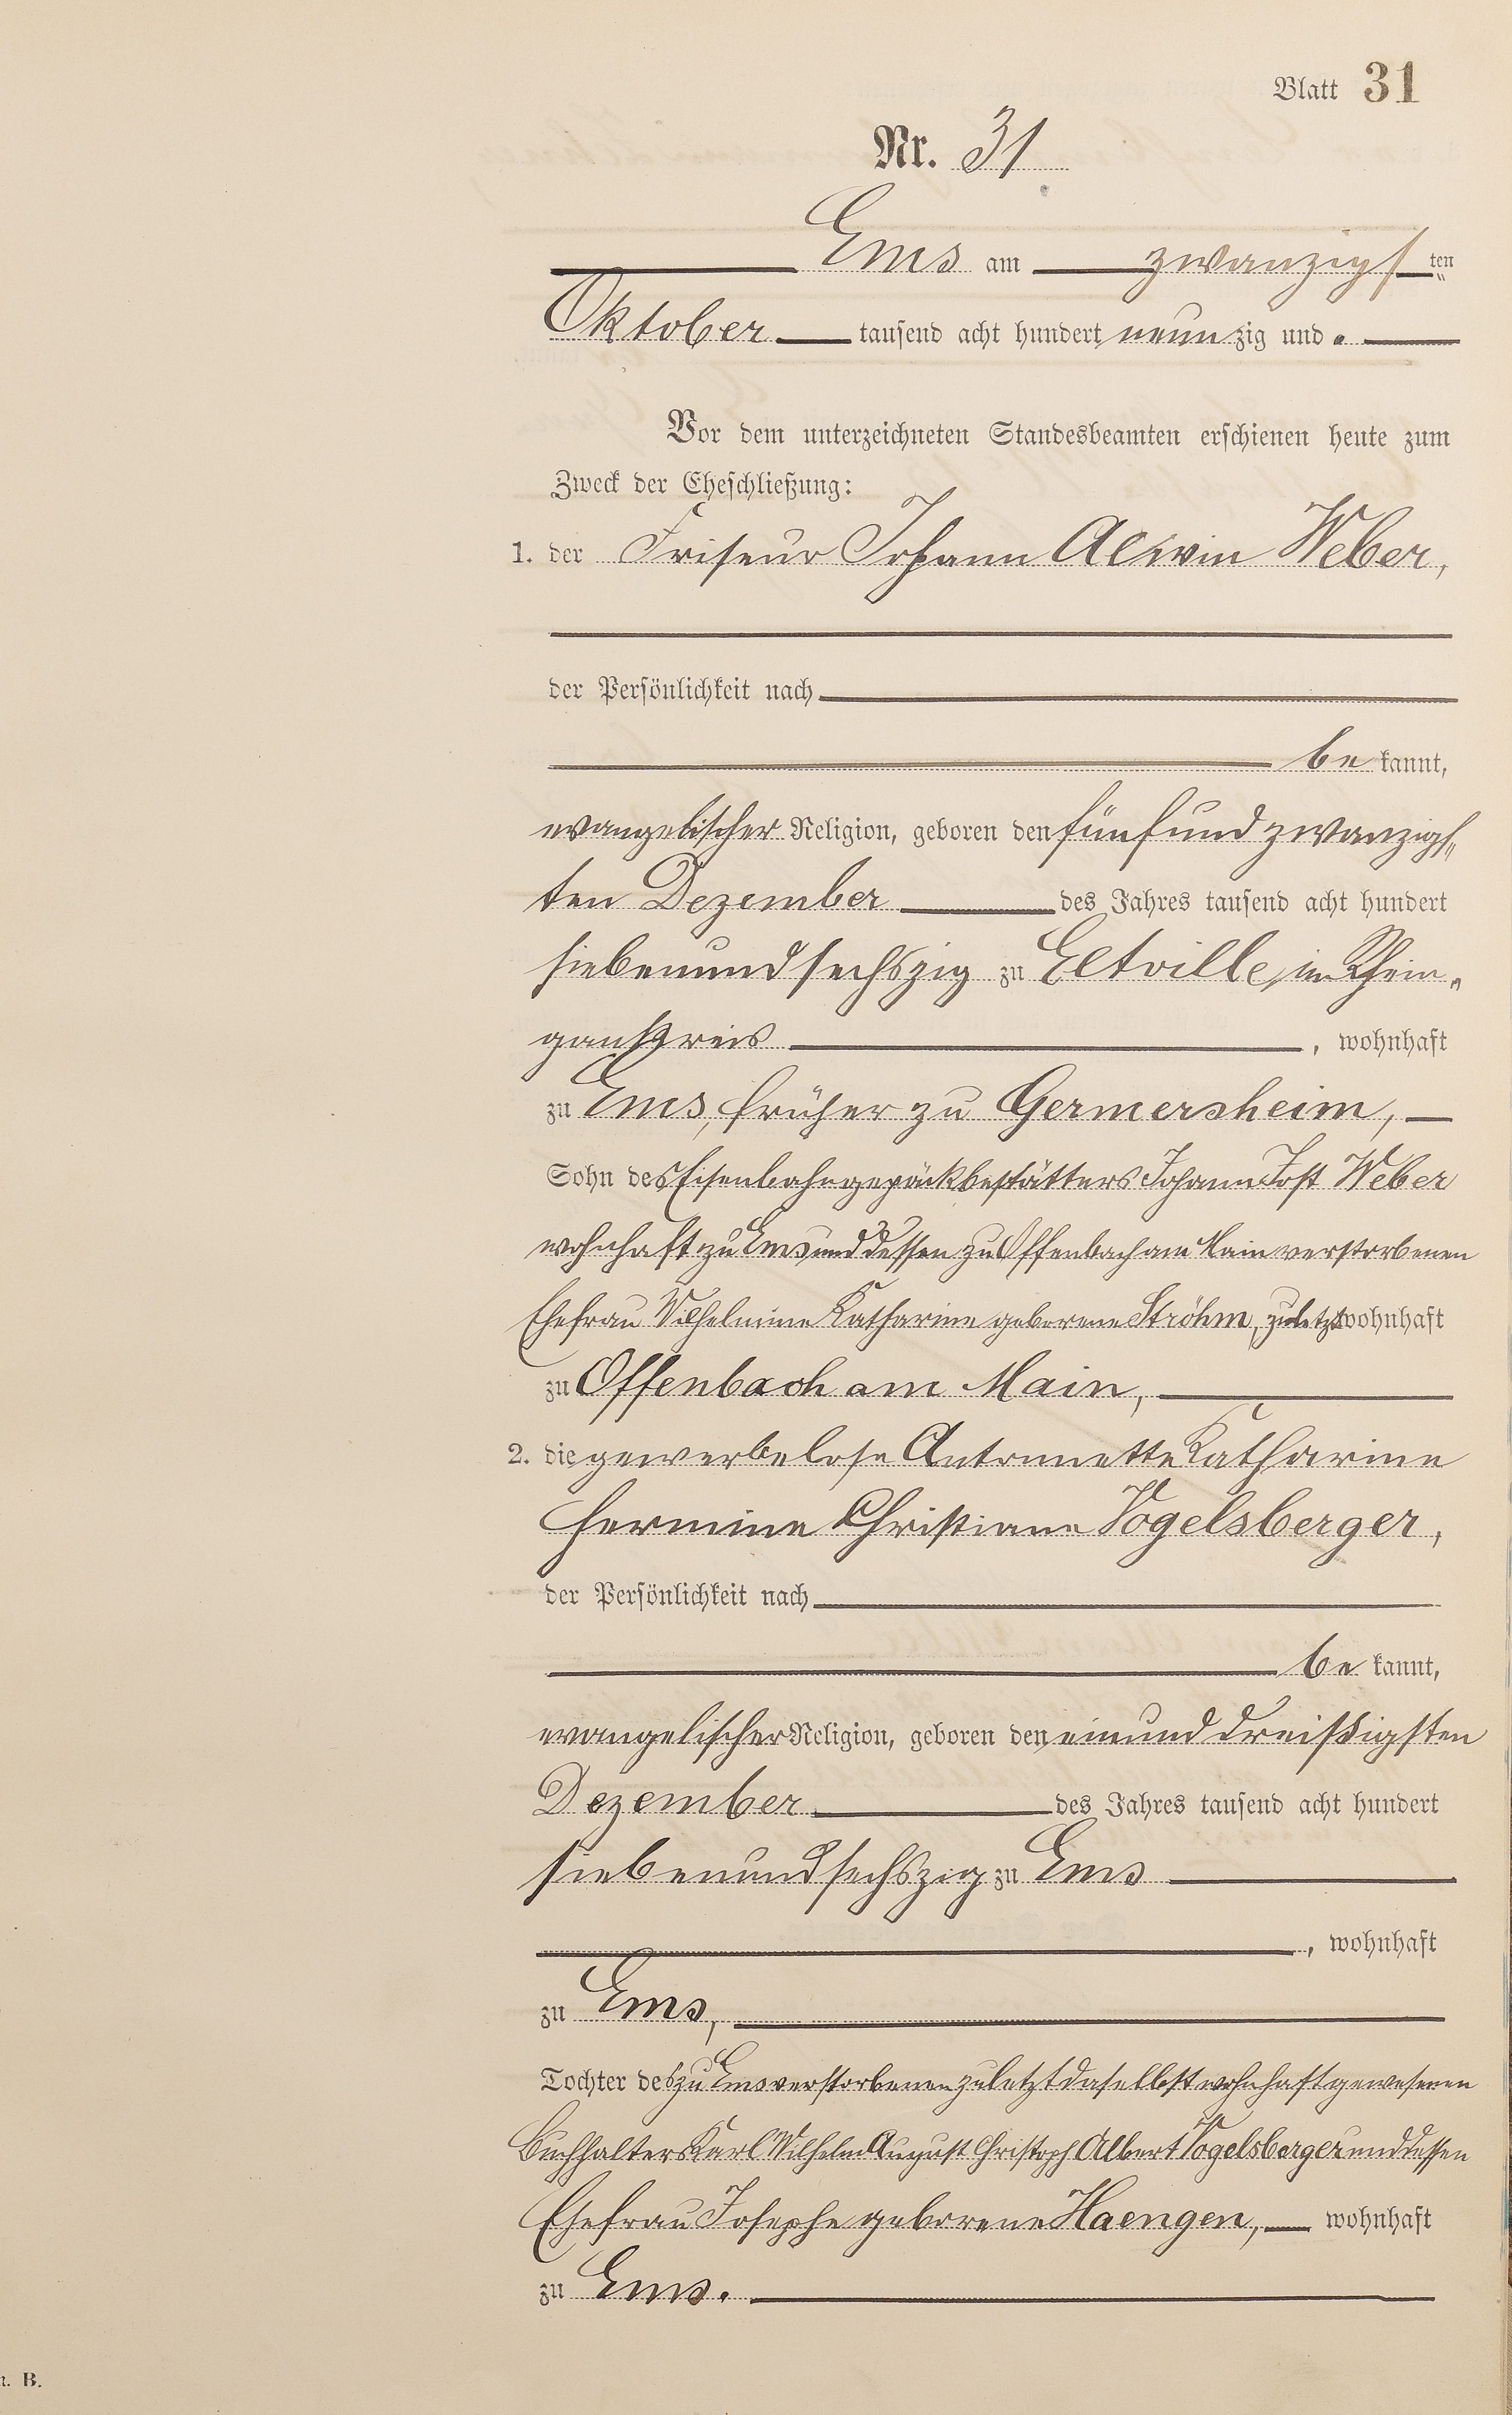 Blatt 31
Nr. 31
Ems am zwanzigsten
Oktober tausend acht hundert neunzig und
Vor dem unterzeichneten Standesbeamten erschienen heute zum
Zweck der Eheschließung:
1. der Friseur Johann Alwin Weber,
der Persönlichkeit nach
be kannt,
evangelischer Religion, geboren den fünfundzwanzigs„
ten Dezember des Jahres tausend acht hundert
siebenundsechszig zu Eltville, im Rhein„
gaukreis, wohnhaft
zu Ems, früher zu Germersheim,
Sohn des Eisenbahngepäckbestätters Johann Jost Weber
wohnhaft zu Ems und dessen zu Offenbach am Main verstorbenen
Ehefrau Wilhelmine Katharine geborene Ströhm, zuletzt wohnhaft
zu Offenbach am Main,
2. die gewerbelose Antonnette Katharine
Hermine Christiane Vogelsberger,
der Persönlichkeit nach
be kannt,
evangelischer Religion, geboren den einunddreißigsten
Dezember des Jahres tausend acht hundert
siebenundsechszig zu Ems
, wohnhaft
zu Ems,
Tochter des zu Ems verstorbenen zuletzt daselbst wohnhaft gewesenen
Buchhalters Karl Wilhelm August Christoph Albert Vogelsberger und dessen
Ehefrau Josephe geborene Haengen, wohnhaft
zu Ems.
B.